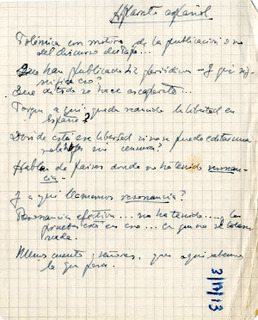 Aparato español
Polémica con motivo de la publicación o no
del discurso de
Que han publicado 12 periódicos - Y qué sig-
nifica eso?
Que detrás no hace
Porque a qué queda reducida la libertad en
España?
Donde está esa libertad si no se puede editar una
sin censura?
Hablan de países donde no ha tenido resonan-
cia.-
Y a qué llamamos resonancia?
Resonancia efectiva... no ha tenido... y la
prueba está en eso... en que no se
nada.
Menos cuento, señores, que aquí sabemos
lo que pasa.
3/4/13